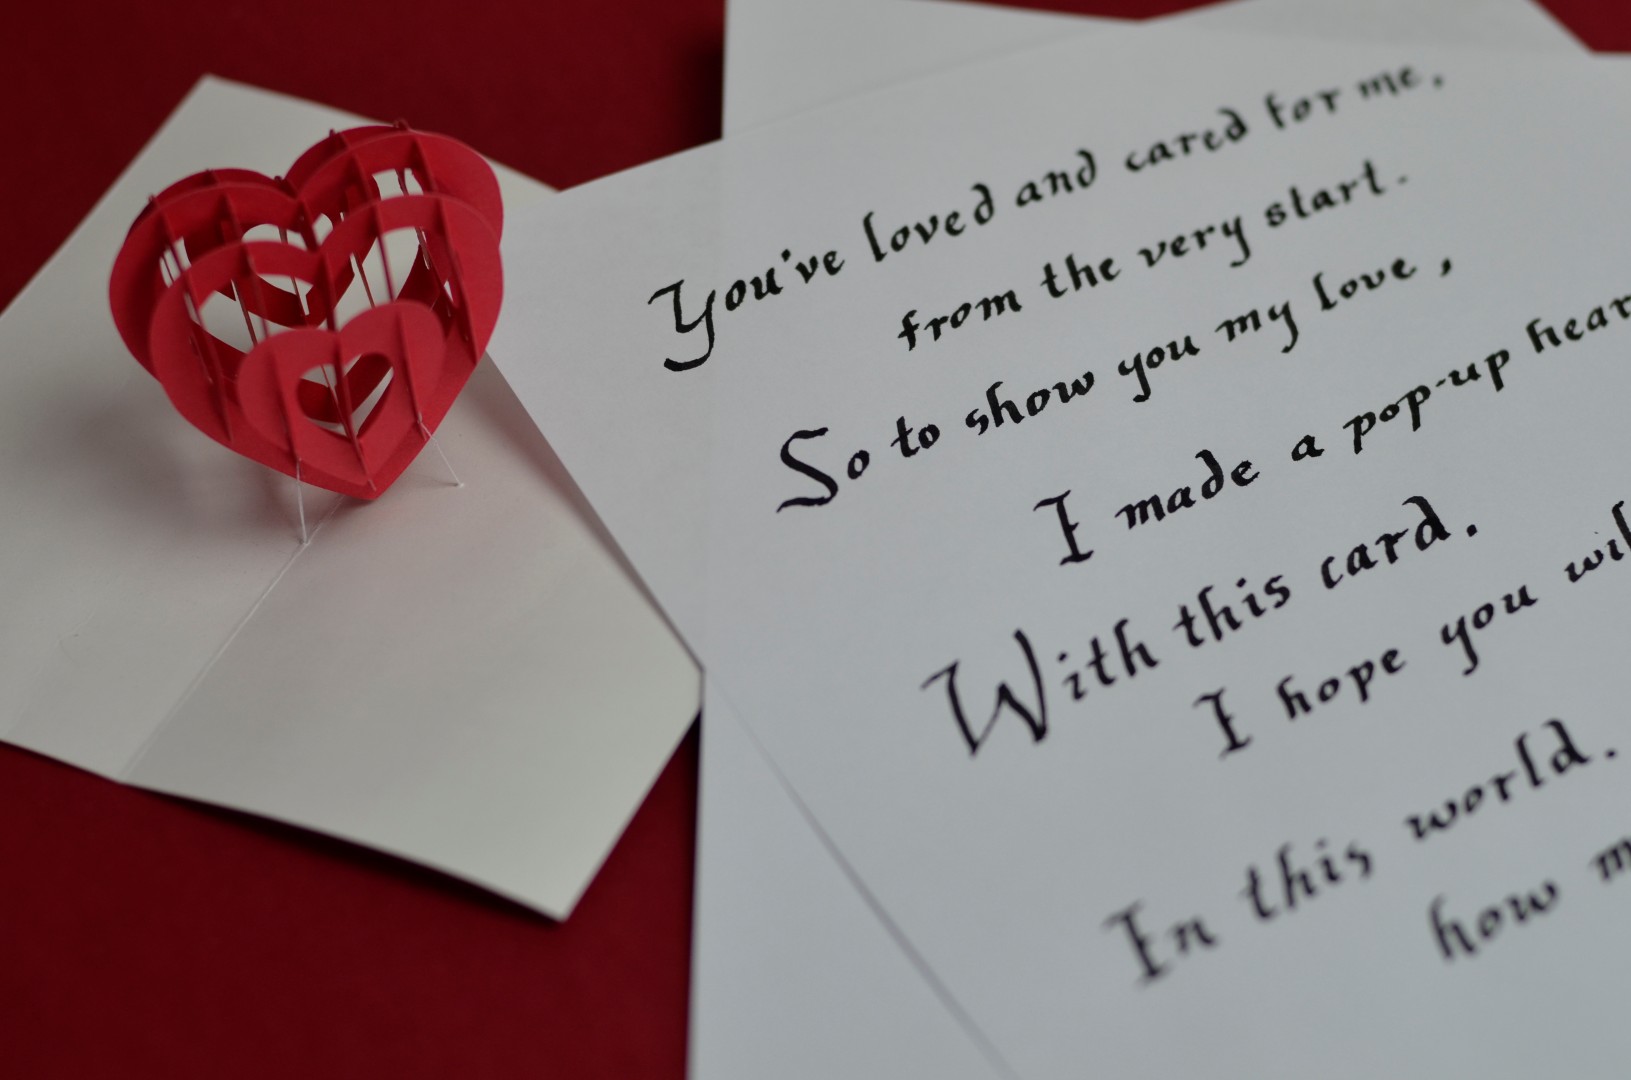 You've loved and cared for me,
from the very start.
So to show you my love,
I made a pop-up
With this card.
I hope you
In this world.
how